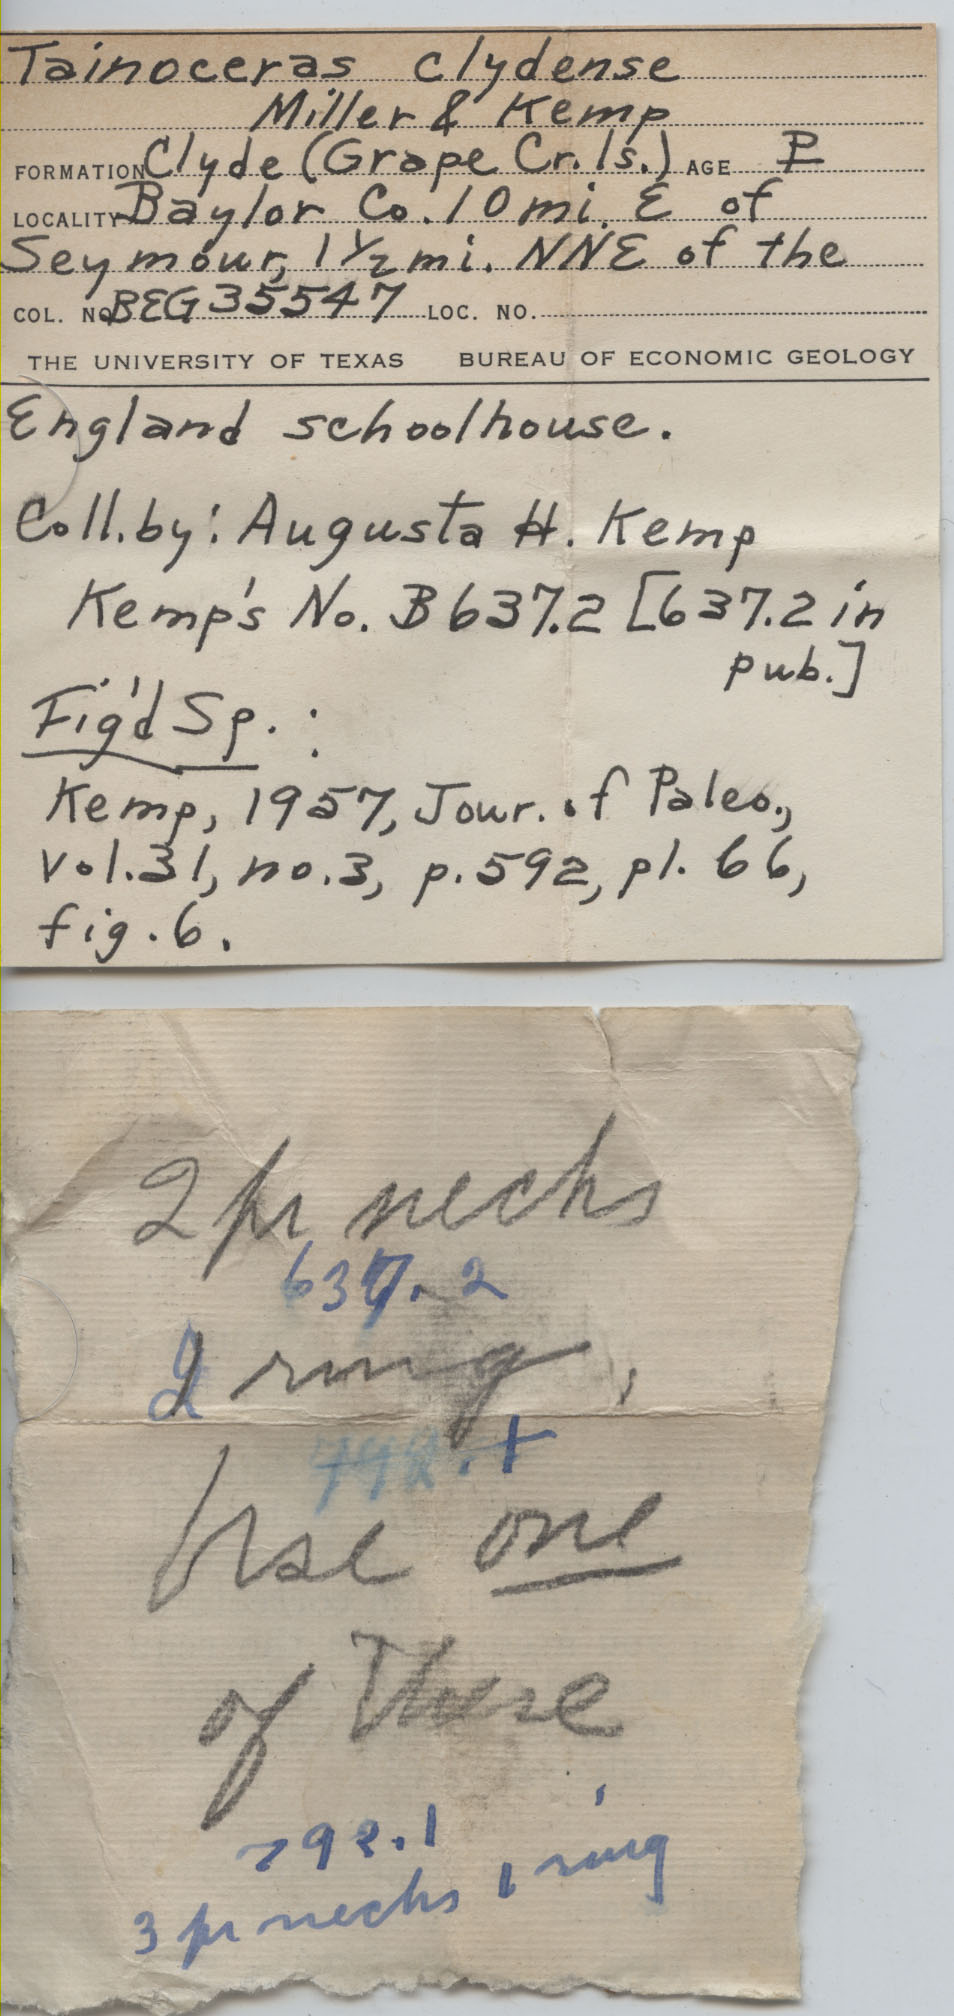 Tainoceras clydense
Miller & Kemp
FORMATION Clyde (Grape Cr. ls.) AGE P
LOCALITY Baylor Co. 10 mi. E of
Seymour, 1 1/2 mi. NNE of the
COL. NO. BEG 35547 LOC. NO.
THE UNIVERSITY OF TEXAS BUREAU OF ECONOMIC GEOLOGY
England schoolhouse.
Coll. by: Augusta H. Kemp
Kemp's No. B 637.2 [637.2 in
pub.]
Fig'd Sp. :
Kemp, 1957, Jour. of Paleo.,
Vol. 31, no. 3, p. 592, pl. 66,
fig. 6.
2 pr necks
637.2
2 ring,
.1
Use one
of these
792.1
3 pr necks 1 ring